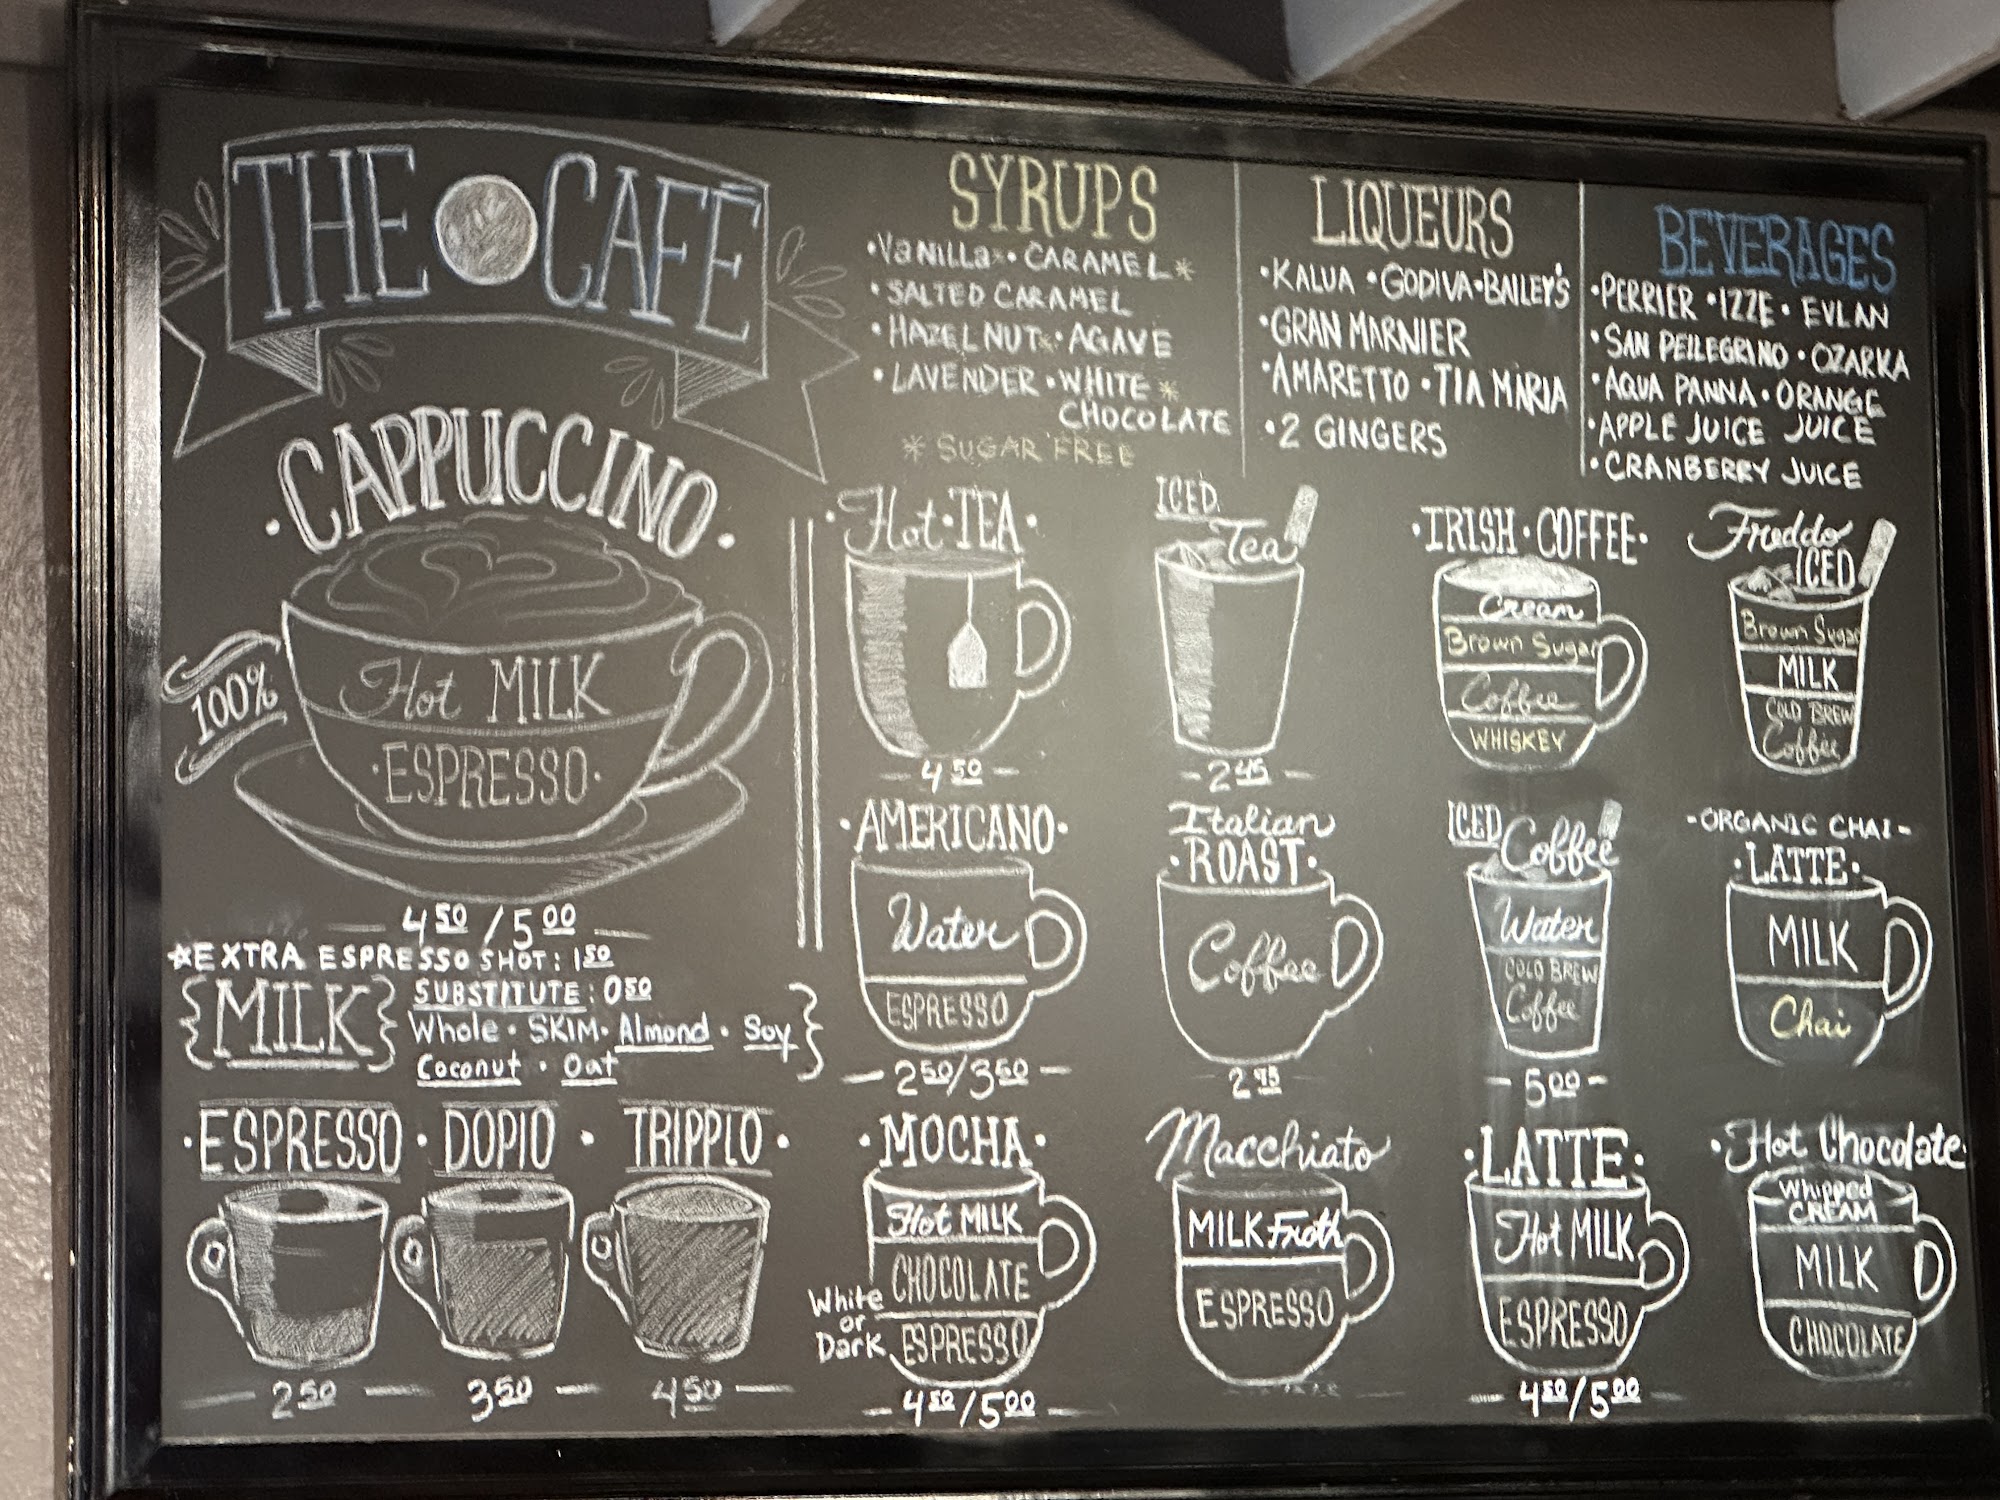 THE CAFÉ
·CAPPUCCINO·
100%
Hot MILK
·ESPRESSO·
4 50 / 5 00
*EXTRA ESPRESSO SHOT: 1 50
{MILK}
SUBSTITUTE: 0 50
Whole · SKIM · Almond · Soy
Coconut · Oat
·ESPRESSO · DOPIO · TRIPPLO·
2 50
3 50
4 50
SYRUPS
·VaNiLLa*·CARAMEL*
·SALTED CARAMEL
·HAZELNUT*·AGAVE
·LAVENDER·WHITE*
CHOCOLATE
* SUGAR FREE
LIQUEURS
·KALUA ·GODIVA·BAILEY'S
·GRAN MARNIER
·AMARETTO ·TIA MARIA
·2 GINGERS
BEVERAGES
·PERRIER ·IZZE· EVLAN
·SAN PELLEGRINO ·OZARKA
·AQUA PANNA·ORANGE
·APPLE JUICE JUICE
·CRANBERRY JUICE
·Hot·TEA·
4 50
ICED
Tea
2 45
·IRISH·COFFEE·
Cream
Brown Sugar
Coffee
WHISKEY
Freddo
ICED
Brown Sugar
MILK
COLD BREW
Coffee
·AMERICANO·
Water
ESPRESSO
2 50/3 50
Italian
·ROAST·
Coffee
2 95
ICED Coffee
Water
COLD BREW
Coffee
-5 00-
-ORGANIC CHAI-
·LATTE·
MILK
Chai
·MOCHA·
Hot MILK
CHOCOLATE
White
or
Dark
ESPRESSO
4 50/5 00
Macchiato
MILK Froth
ESPRESSO
·LATTE·
Hot MILK
ESPRESSO
4 50/5 00
·Hot Chocolate·
Whipped
CREAM
MILK
CHOCOLATE